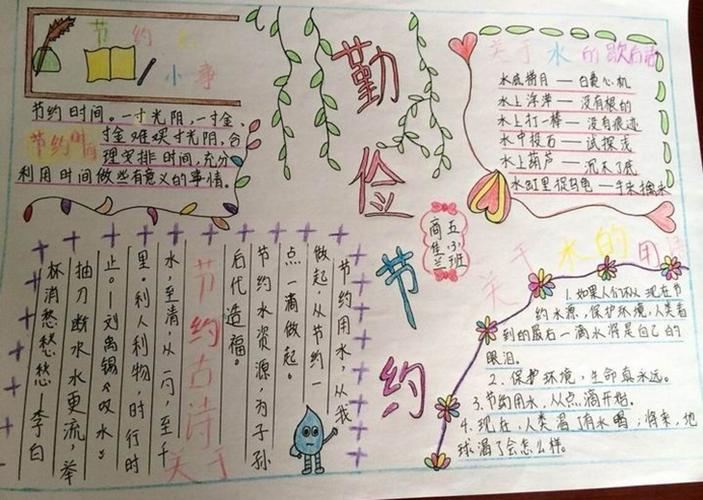 节约
小事
节约时间。一寸光阴，一寸金，
寸金难买寸光阴，合
节约时间
理安排时间，充分
利用时间做些有意义的事情。
勤
俭
节
约
五(3)班
商佳兰
关于水的歇后语
水底捞月——白费心机
水上浮萍——没有根的
水上打一棒——没有痕迹
水中投石——试探浅
水上葫芦——沉不了底
水缸里捉乌龟——手来擒来
关于水的用
1.如果人们不从现在节
约水源，保护环境，人类看
到的最后一滴水将是自己的
眼泪。
2、保护环境，生命真永远。
3.节约用水，从点滴开始。
4.现在，人类渴了有水喝，将来，地
球渴了会怎么样。
节约用水，从我
做起，从节约一
点一滴做起。
节约水资源，为子孙
后代造福。
关于节约古诗
水，至清，从一勺，至千
里。利人利物，时行时
止。——刘禹锡《叹水》
抽刀断水水更流，举
杯消愁愁愁——李白